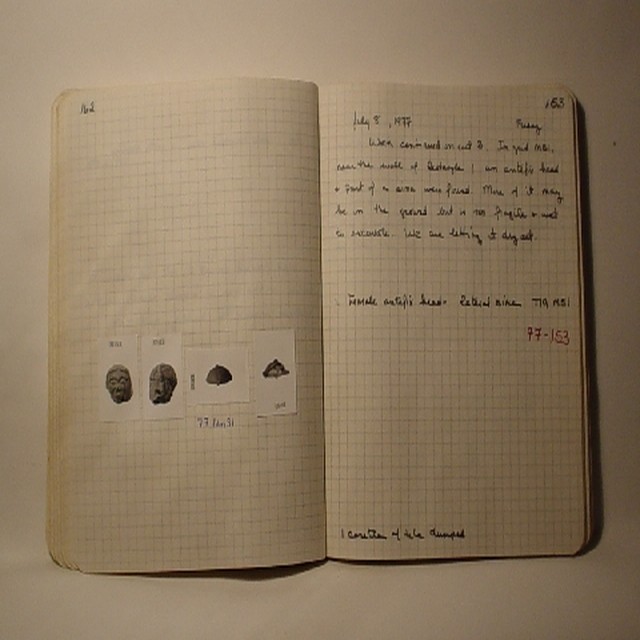 162
153
July 8, 1977 Friday
Work continued on cut 3. In grid M31,
near the wall of Rectangle 1 an antefix head
+ part of a sima were found. More of it may
be in the ground but is too fragile + wet
to excavate. We are letting it dry out.
1. Female antefix head - lateral sima T19 M31
77-153
1 cassetta of tile dumped